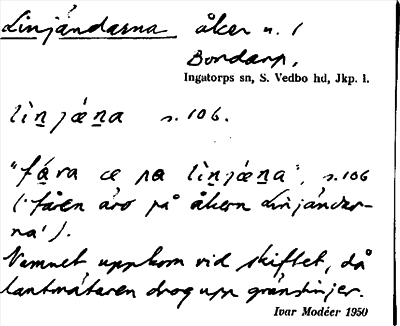 Linjändarna åker n. 1
Bordarp,
Ingatorps sn, S. Vedbo hd, Jkp. l.
lìn̲jæn̲a s. 106.
"fa̲ra æ pa lìn̲jæn̲a", s. 106
(ˈfåren äro på åkern Linjändar-
naˈ).
Namnet uppkom vid skiftet, då
lantmätaren drog upp gränslinjer.
Ivar Modéer 1950